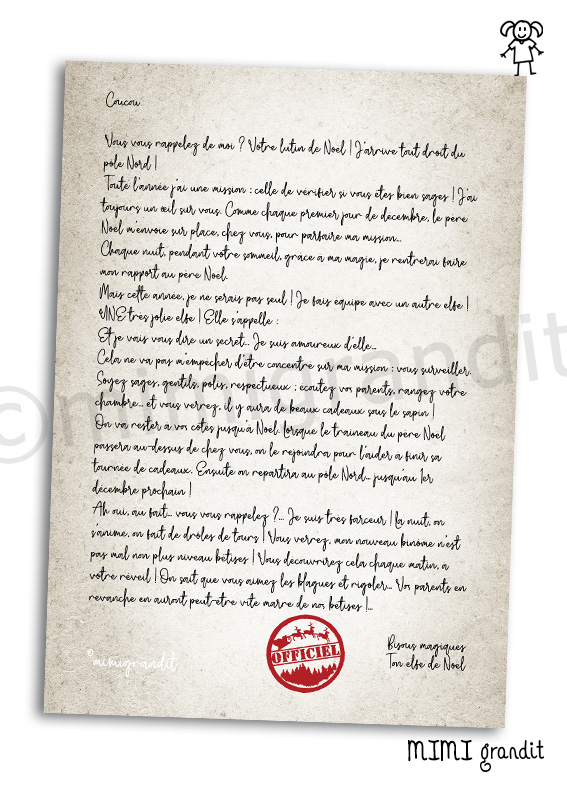 Coucou
Vous vous rappelez de moi ? Votre lutin de Noël ! J'arrive tout droit du
pôle Nord !
Toute l'année j'ai une mission : celle de vérifier si vous êtes bien sages ! J'ai
toujours un œil sur vous. Comme chaque premier jour de décembre, le père
Noël m'envoie sur place, chez vous, pour parfaire ma mission...
Chaque nuit, pendant votre sommeil, grâce à ma magie, je rentrerai faire
mon rapport au père Noël.
Mais cette année, je ne serais pas seul ! Je fais équipe avec un autre elfe !
UNE très jolie elfe ! Elle s'appelle :
Et je vais vous dire un secret... Je suis amoureux d'elle...
Cela ne va pas m'empêcher d'être concentré sur ma mission : vous surveiller.
Soyez sages, gentils, polis, respectueux ; écoutez vos parents, rangez votre
chambre... et vous verrez, il y aura de beaux cadeaux sous le sapin !
On va rester à vos côtés jusqu'à Noël. Lorsque le traineau du père Noël
passera au-dessus de chez vous, on le rejoindra pour l'aider à finir sa
tournée de cadeaux. Ensuite on repartira au pôle Nord... jusqu'au 1er
décembre prochain !
Ah oui, au fait... vous vous rappelez ?... Je suis très farceur ! La nuit, on
s'anime, on fait de drôles de tours ! Vous verrez, mon nouveau binôme n'est
pas mal non plus niveau bêtises ! Vous découvrirez cela chaque matin, à
votre réveil ! On sait que vous aimez les blagues et rigoler... Vos parents en
revanche en auront peut-être vite marre de nos bêtises !...
OFFICIEL
Bisous magiques
Ton elfe de Noël
©mimigrandit
©mimigrandit
MIMI grandit